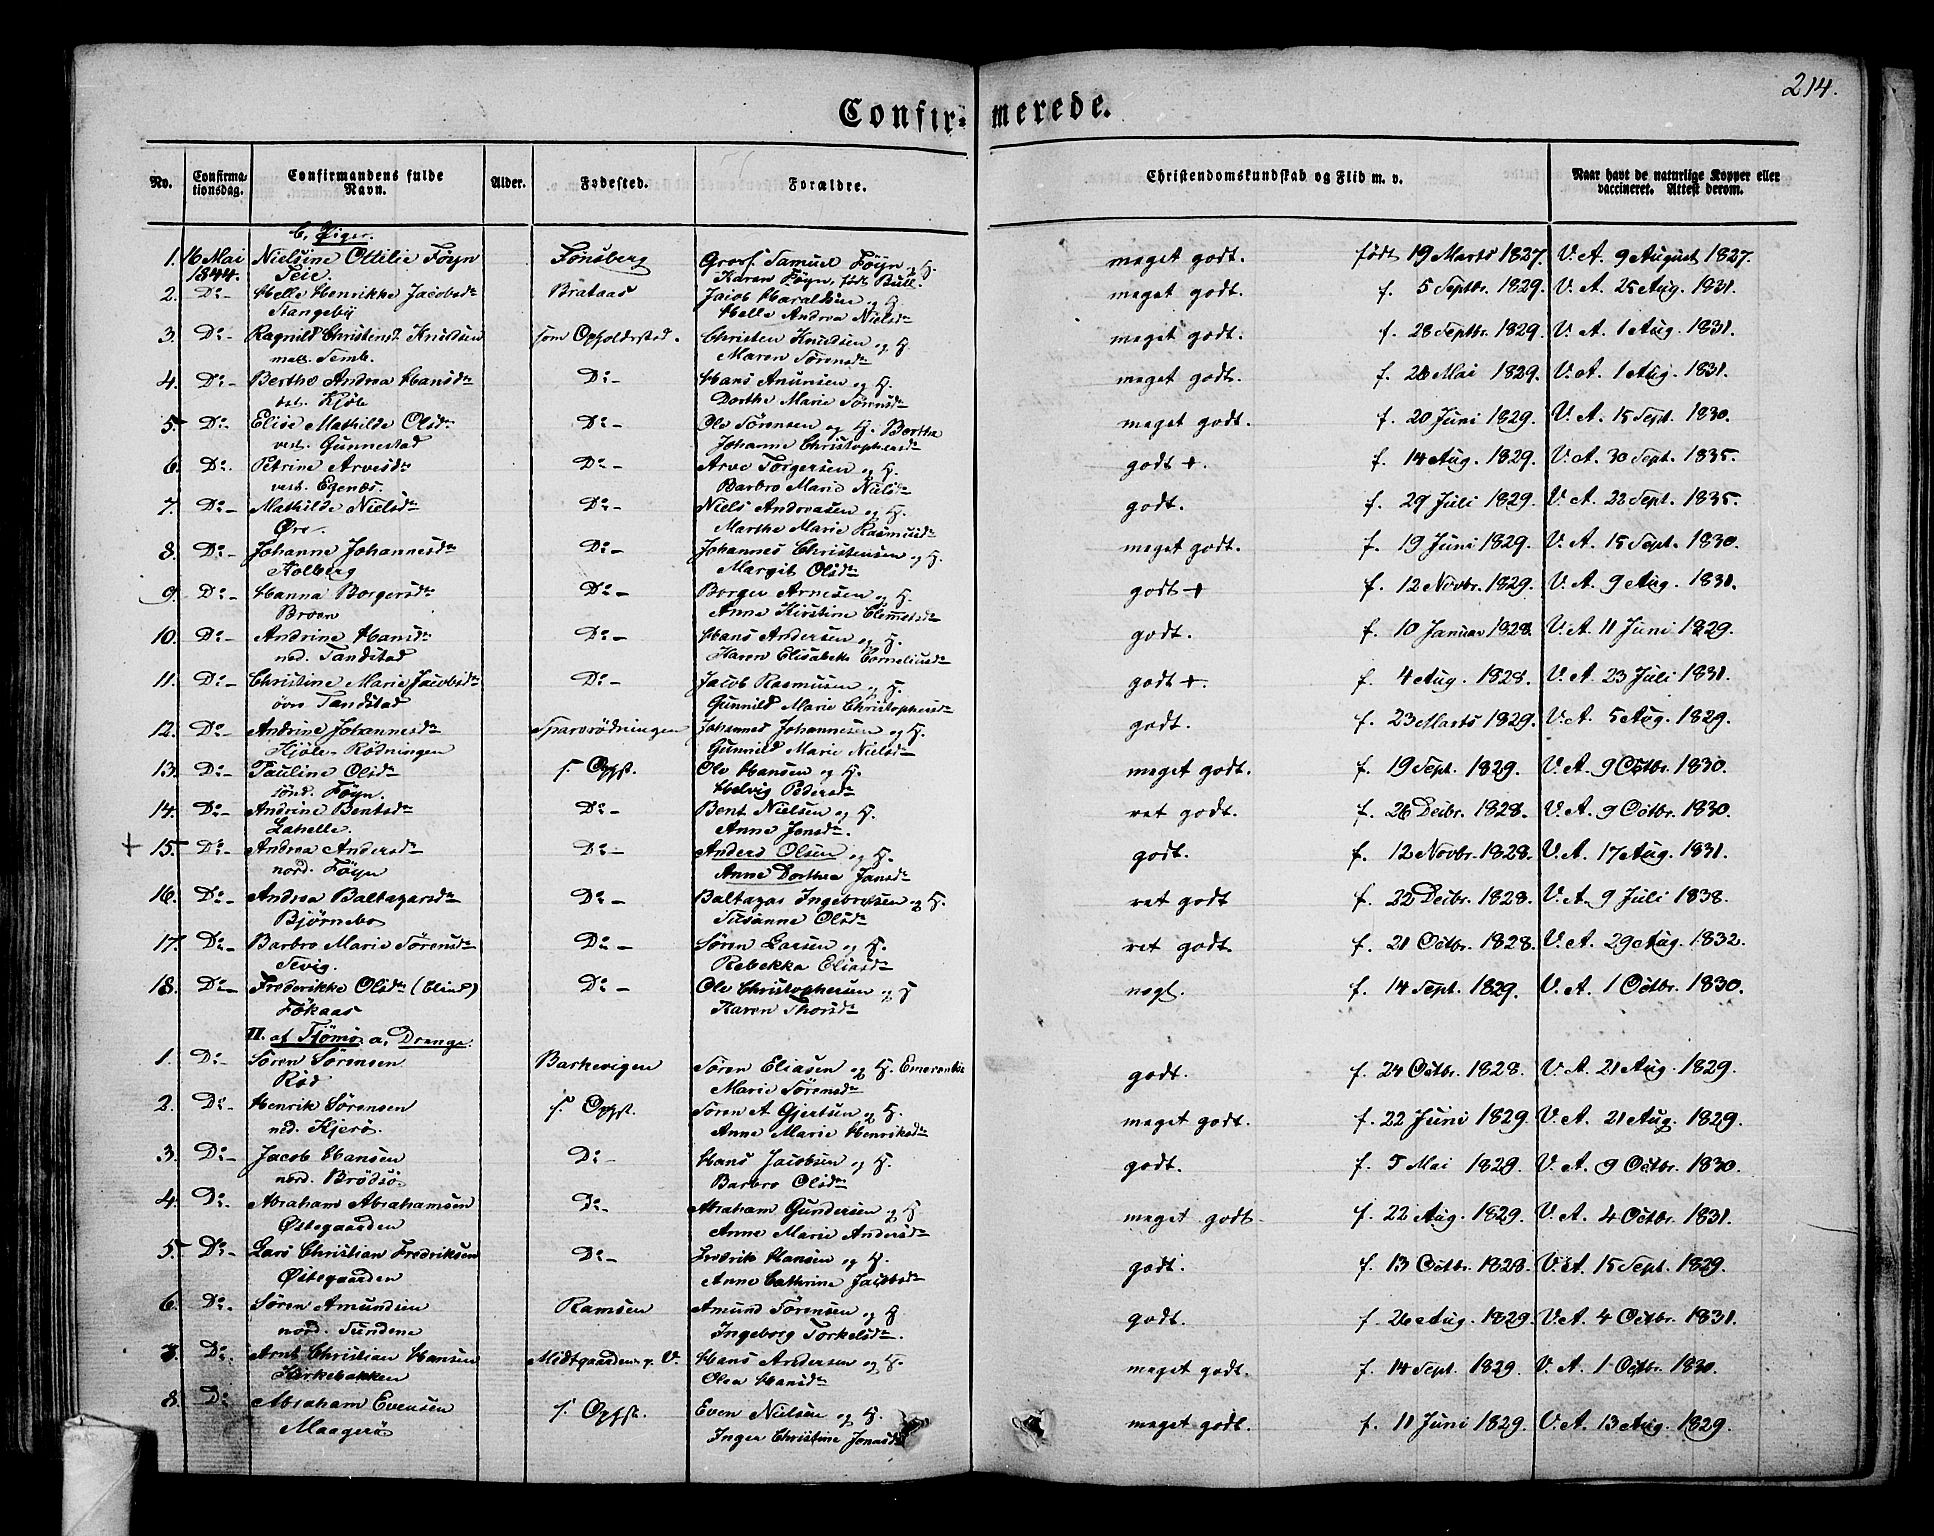 214.
Confirmerede.
No. Confirmationsdag. Confirmandens fulde Navn. Alder. Fødested. Forældre. Christendomskundskab og Flid m. v. Naar havt de naturlige Kopper eller vaccineret. Attest derom.
b, Piger.
1. 16 Mai 1844. Nielsine Ottilie Føyn Tønsberg Gross. Samuel Føyn og H. meget godt. født 19 Marts 1827. V. A. 9 August 1827.
Teie. Karen Føyn, født Bull.
2. Do- Helle Henrikke Jacobsdn Brataas Jacob Haraldsen og H. meget godt. f. 5 Septbr. 1829. V. A. 25 Aug. 1831.
Stangeby Helle Andrea Nielsdn
3. Do- Ragnild Christense Knudsen som Opholdsstad. Christen Knudsen og H. meget godt. f. 28 Septbr. 1829. V. A. 1 Aug. 1831.
mell. Semb. Maren Sørensdn
4. Do- Berthe Andrea Hansdn Do- Hans Anunsen og H. meget godt. f. 26 Mai 1829. V. A. 1 Aug. 1831.
Kjøle Dorthe Marie Sørensdn
5. Do- Elise Mathilde Olsdn Do- Ole Sørensen og H. Berthe meget godt. f. 20 Juni 1829. V. A. 15 Sept. 1830.
vest. Gunnestad Johanne Christophersdn
6. Do- Petrine Arvesdn Do- Arve Torgersen og H. godt +. f. 14 Aug. 1829. V. A. 30 Sept. 1835.
vest. Egenæs. Barbro Marie Nielsdn
7. Do- Mathilde Nielsdn Do- Niels Andreasen og H. godt. f. 29 Juli 1829. V. A. 22 Sept. 1835.
Øre. Marthe Marie Rasmusdn
8. Do- Johanne Johannesdn Do- Johannes Christensen og H. meget godt. f. 19 Juni 1829. V. A. 15 Sept. 1830.
Holberg Margit Olsdn
9. Do- Hanna Borgersdn Do- Borger Arnesen og H. godt + f. 12 Novbr. 1829. V. A. 9 Aug. 1831.
Broen Anne Kirstine Clemetsdn
10. Do- Andrine Hansdn Do- Hans Andersen og H. godt. f. 10 Januar 1828. V. A. 11 Juni 1829.
ned. Tandstad Karen Elisabeth Corneliusdn
11. Do- Christine Marie Jacobsdn Do- Jacob Rasmusen og H. godt +. f. 4 Aug. 1828. V. A. 23 Juli 1831.
øvre Tandstad Gunnild Marie Christophersdn
12. Do- Andrine Johannesdn Sparrødningen Johannes Johannesen og H. godt. f. 23 Marts 1829. V. A. 5 Aug. 1829.
Kjøle-Rødningen Gunnild Marie Nielsdn
13. Do- Pauline Olsdn s. Ophst. Ole Hansen og H. meget godt. f. 19 Sept. 1829. V. A. 9 Octbr. 1830.
sønd. Føyn. Helvig Pedersdn
14. Do- Andrine Bentsdn Do- Bent Nielsen og H. ret godt. f. 26 Decbr. 1828. V. A. 9 Octbr. 1830.
Anne Jensdn.
+ 15. Do- Andrea Andersdn Do- Anders Olsen og H. godt. f. 12 Novbr. 1828. V. A. 17 Aug. 1831.
nord. Føyn Anne Dorthea Jansdn
16. Do- Andrea Baltazarsdn Do- Baltazar Ingebretsen og H. ret godt f. 22 Decbr. 1828. V. A. 9 Juli 1838.
Bjørnebo Susanne Olsdn
17. Do- Barbro Marie Sørensdn Do- Søren Larsen og H. ret godt f. 21 Octbr. 1828. V. A. 29 Aug. 1832.
Sevig. Rebekka Eliasdn
18. Do- Frederikke Olsdn (blind) Do- Ole Christophersen og H nogt. f. 14 Sept. 1829. V. A. 1 Octbr. 1830.
Føkaas Karen Thorsdn
II. af Tjømø a, Drenge.
1. Do- Søren Sørensen Barkevigen Søren Eliasen og H. Emerentse godt. f. 24 Octbr. 1828. V. A. 21 Aug. 1829.
Rød Marie Sørensdn
2. Do- Henrik Sørensen s. Ophst. Søren A Gjertsen og H. meget godt. f. 22 Juni 1829. V. A. 21 Aug. 1829.
ned. Kjerø. Anne Marie Henriksdn
3. Do- Jacob Hansen Do- Hans Jacobsen og H. godt. f. 5 Mai 1829. V. A. 9 Octbr. 1830.
nord. Brødsø Barbro Olsdn
4. Do- Abraham Abrahamsen Do- Abraham Gundersen og H meget godt. f. 22 Aug. 1829. V. A. 4 Octbr. 1831.
Østegaarden Anne Marie Andersdn
5. Do- Lars Christian Fredriksen Do- Fredrik Hansen og H godt. f. 13 Octbr. 1828. V. A. 15 Sept. 1829.
Østegaarden Anne Cathrine Jacobsdn
6. Do- Søren Amundsen Ramsen Amund Sørensen og H godt. f. 26 Aug. 1829. V. A. 4 Octbr. 1831.
nord. Sundene Ingeborg Torkelsdn.
7. Do- Arnt Christian Hansen Midtgaarden p. V. Hans Andersen og H. meget godt. f. 14 Sept. 1829. V. A. 1 Octbr. 1830.
Kirkebakken Olea Hansdn
8. Do- Abraham Evensen s. Ophst. Even Nielsen og H. meget godt. f. 11 Juni 1829. V. A. 13 Aug. 1829.
Maagerø Inger Christine Jonasdn